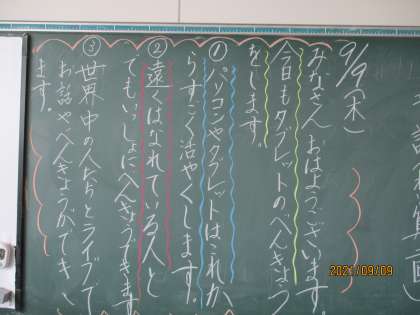 9/9(木)
みなさん おはようございます。
今日もタブレットのべんきょう
をします。
①パソコンやタブレットはこれか
らすごく活やくします。
②遠くはなれている人と
でもいっしょにべんきょうできます
③世界中の人たちとライブで
お話やべんきょうができ
ます。
2021/09/09